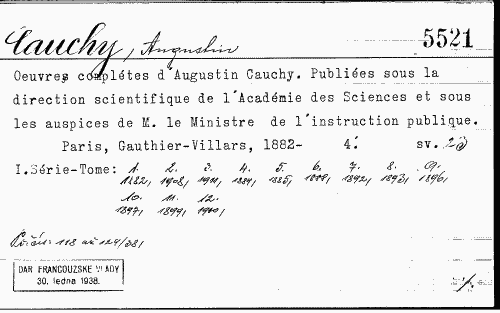 Cauchy, Augustin 5521
Oeuvres complétes d'Augustin Cauchy. Publiées sous la
direction scientifique de l'Académie des Sciences et sous
les auspices de M. le Ministre de l'instruction publique.
Paris, Gauthier-Villars, 1882- 4: sv. 23
I.Série-Tome: 1. 2. 3. 4. 5. 6. 7. 8. 9.
1882, 1908, 1911, 1884, 1885, 1888, 1892, 1893, 1896,
10. 11. 12.
1897, 1899, 1900,
118 až 129/38,
DAR FRANCOUZSKE VLADY
30. ledna 1938.